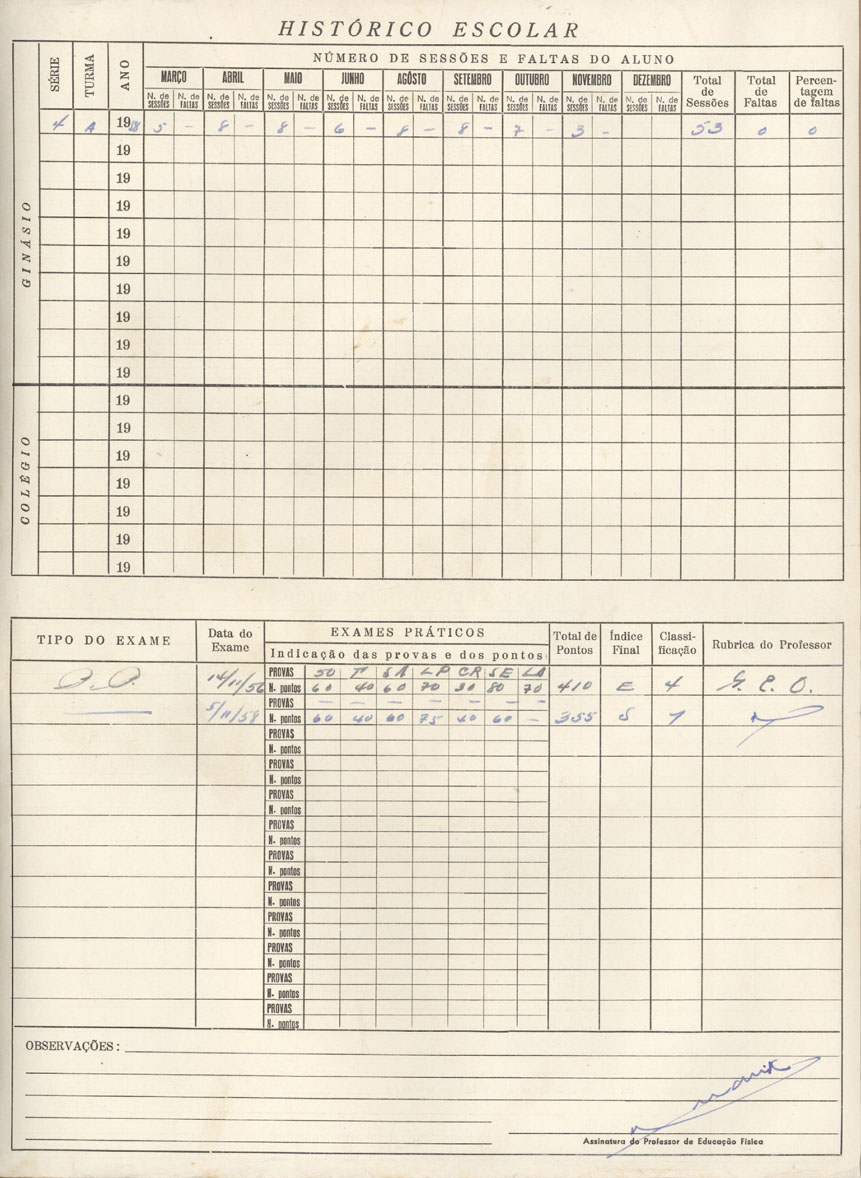 HISTÓRICO ESCOLAR
NÚMERO DE SESSÕES E FALTAS DO ALUNO
SÉRIE TURMA ANO MARÇO ABRIL MAIO JUNHO AGÔSTO SETEMBRO OUTUBRO NOVEMBRO DEZEMBRO Total de Sessões Total de Faltas Percen-tagem de faltas
N. de SESSÕES N. de FALTAS N. de SESSÕES N. de FALTAS N. de SESSÕES N. de FALTAS N. de SESSÕES N. de FALTAS N. de SESSÕES N. de FALTAS N. de SESSÕES N. de FALTAS N. de SESSÕES N. de FALTAS N. de SESSÕES N. de FALTAS N. de SESSÕES N. de FALTAS
4 A 1958 5 - 8 - 8 - 6 - 8 - 8 - 7 - 3 - 53 0 0
GINÁSIO
19
19
19
19
19
19
19
19
19
COLÉGIO
19
19
19
19
19
19
19
TIPO DO EXAME Data do Exame EXAMES PRÁTICOS Total de Pontos Índice Final Classi-ficação Rubrica do Professor
Indicação das provas e dos pontos
PROVAS 50 SA LP CR SE LA
14/11/56 N. pontos 60 40 60 70 30 80 70 410 E 4 G. E. O.
PROVAS - - - - - - -
5/11/58 N. pontos 60 40 60 75 40 60 - 355 S
PROVAS
N. pontos
PROVAS
N. pontos
PROVAS
N. pontos
PROVAS
N. pontos
PROVAS
N. pontos
PROVAS
N. pontos
PROVAS
N. pontos
PROVAS
N. pontos
PROVAS
N. pontos
PROVAS
N. pontos
OBSERVAÇÕES:
Assinatura do Professor de Educação Física